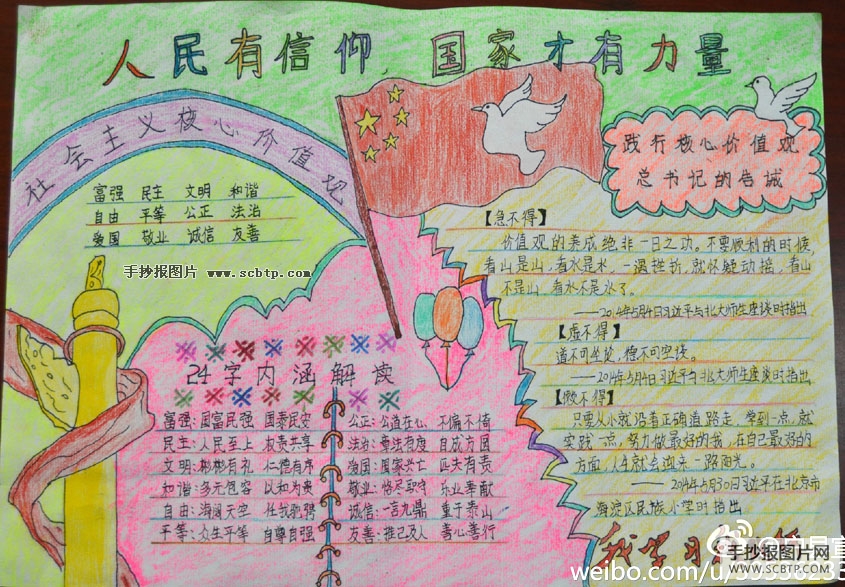 人民有信仰，国家才有力量
社会主义核心价值观
富强 民主 文明 和谐
自由 平等 公正 法治
爱国 敬业 诚信 友善
手抄报图片 www.scbtp.com
践行核心价值观
总书记的告诫
【急不得】
价值观的养成绝非一日之功。不要顺利的时候,
看山是山,看水是水,一遇挫折,就怀疑动摇,看山
不是山,看水不是水了。
——2014年5月4日习近平与北大师生座谈时指出
【虚不得】
道不可坐论,德不可空谈。
——2014年5月4日习近平与北大师生座谈时指出
【微不得】
只要从小就沿着正确道路走,学到一点,就
实践一点,努力做最好的我,在自己最好的
方面,人生就会迎来一路阳光。
——2014年5月30日习近平在北京市
海淀区民族小学时指出
24字内涵解读
富强:国富民强 国泰民安
民主:人民至上 权责共享
文明:彬彬有礼 仁德有序
和谐:多元包容 以和为贵
自由:海阔天空 任我驰骋
平等:众生平等 自尊自强
公正:公道在心 不偏不倚
法治:章法有度 自成方圆
爱国:国家兴亡 匹夫有责
敬业:恪尽职守 乐业奉献
诚信:一言九鼎 重于泰山
友善:推己及人 善心善行
我学习
手抄报图片网
WWW.SCBTP.COM
weibo.com/u/